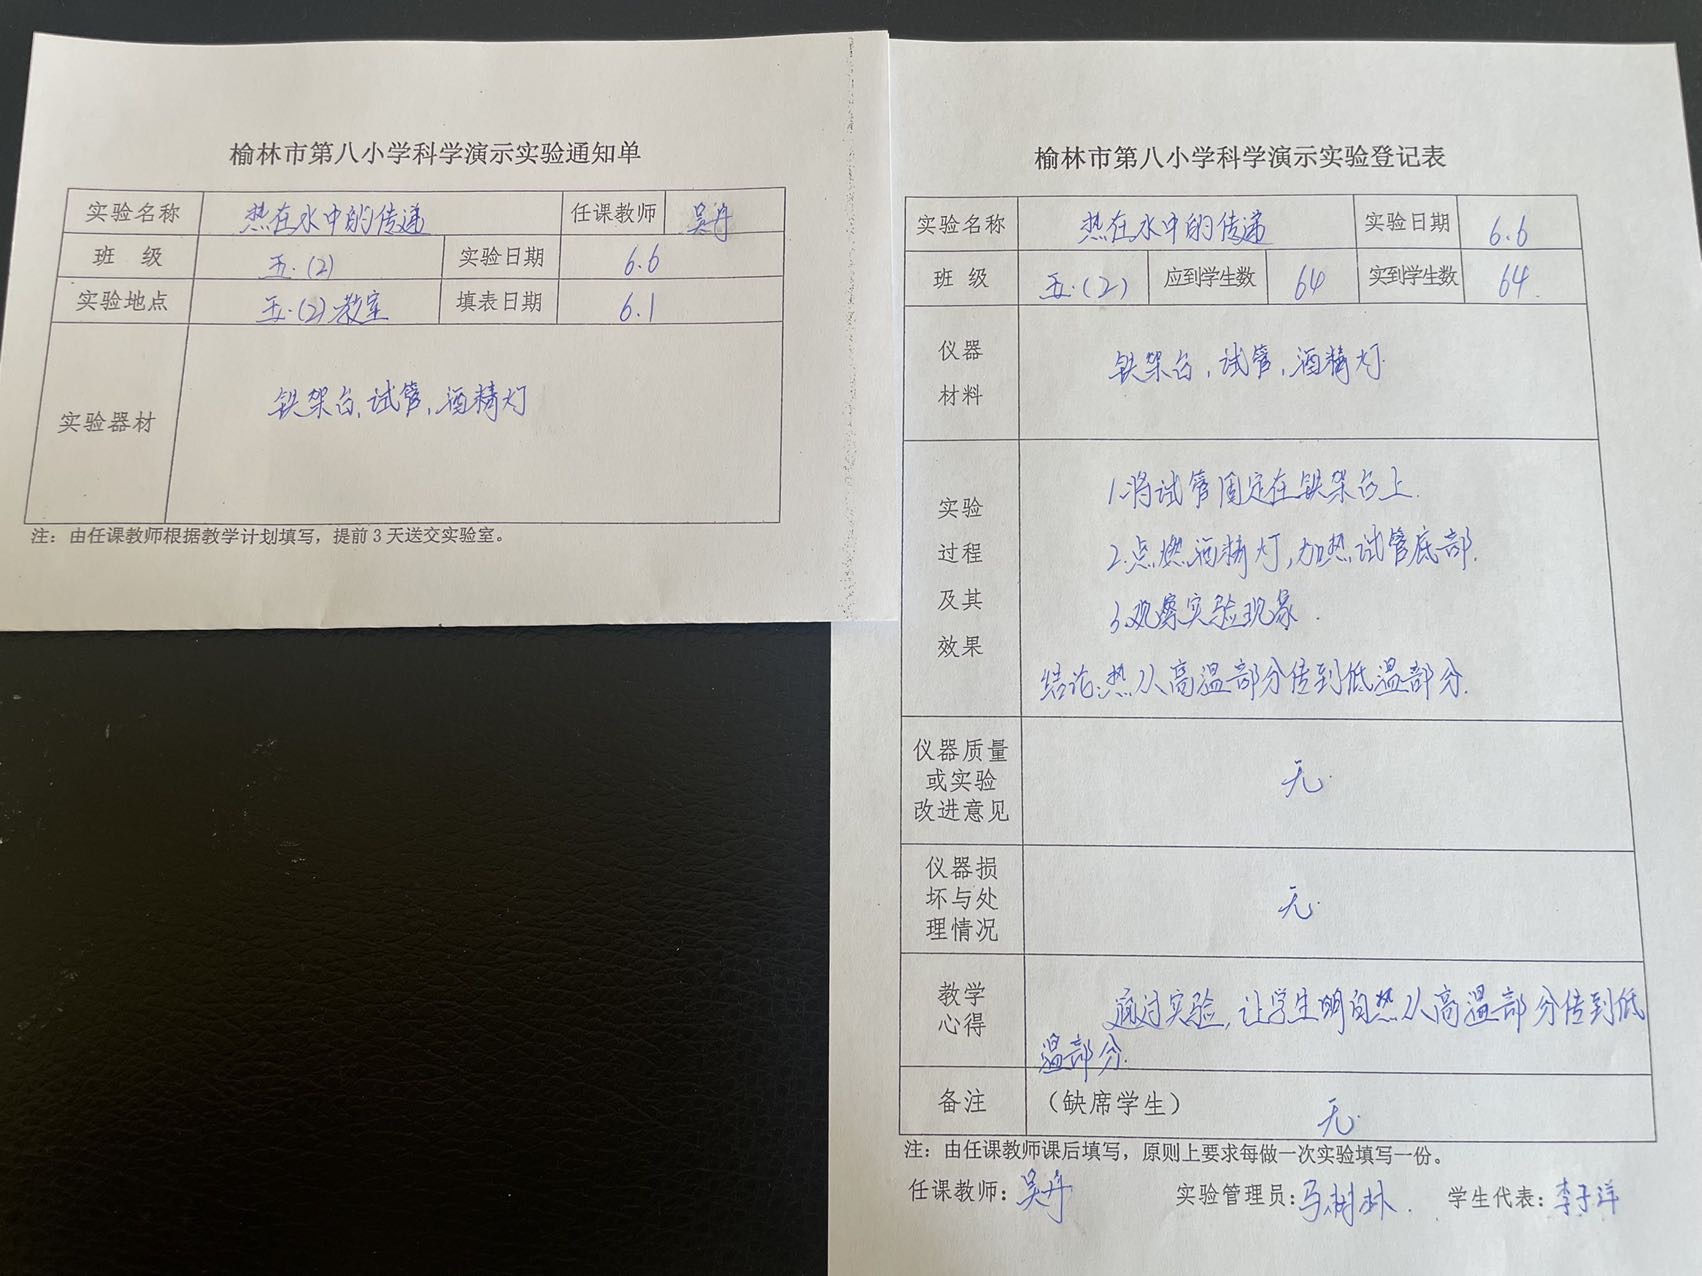 榆林市第八小学科学演示实验通知单
实验名称 热在水中的传递 任课教师 吴丹
班 级 五.(2) 实验日期 6.6
实验地点 五.(2)教室 填表日期 6.1
实验器材 铁架台,试管,酒精灯
注：由任课教师根据教学计划填写，提前3天送交实验室。
榆林市第八小学科学演示实验登记表
实验名称 热在水中的传递 实验日期 6.6
班 级 五.(2) 应到学生数 64 实到学生数 64.
仪器
材料
铁架台,试管,酒精灯.
实验
过程
及其
效果
1.将试管固定在铁架台上.
2.点燃酒精灯,加热试管底部.
3.观察实验现象.
结论:热从高温部分传到低温部分.
仪器质量
或实验
改进意见
无.
仪器损
坏与处
理情况
无.
教学
心得
通过实验,让学生明白热从高温部分传到低
温部分.
备注 （缺席学生） 无.
注：由任课教师课后填写，原则上要求每做一次实验填写一份。
任课教师：吴丹 实验管理员：马树林. 学生代表：李子洋